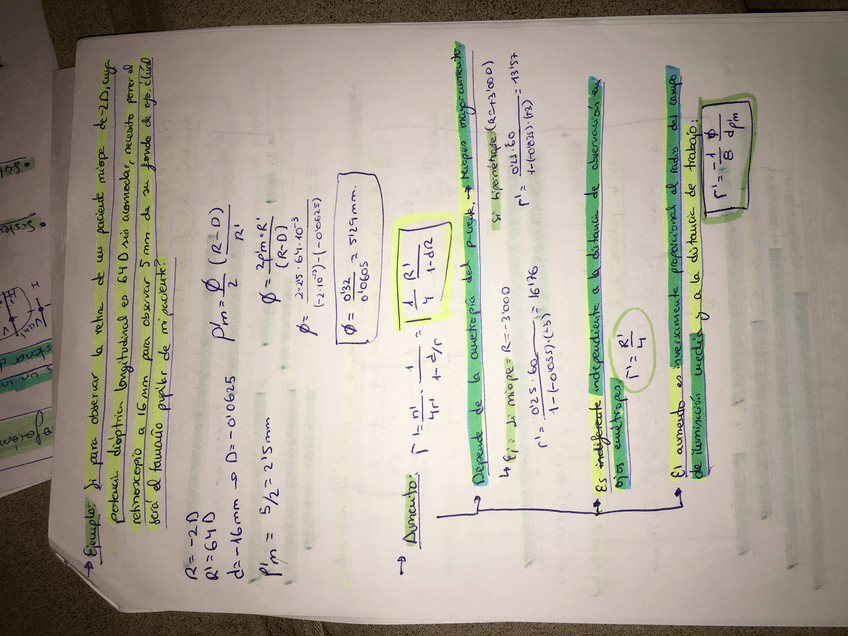 → Ejemplo: Si para observar la retina de un paciente miope de -2D, cuya
potencia dióptrica longitudinal es 64D sin acomodar, necesito poner el
retinoscopio a 16mm para observar 5mm de su fondo de ojo. ¿Cuál
será el tamaño pupilar de mi paciente?
R = -2D
R' = 64D
d = -16mm → D = -0'0625
ρ'm = 5/2 = 2'5mm
ρ'm = ϕ/2 (R-D)/R'
ϕ = 2ρ'm·R'/(R-D)
ϕ = 2·2'5·64·10⁻³/(-2·10⁻³)-(-0'0625)
ϕ = 0'32/0'0605 = 5'29mm.
→ Aumento: Γ' = n'/4r' · 1/1-d/r = 1/4 R'/1-dR
→ Depende de la ametropía del paciente → Miopes mayor aumento.
↳ Ej: Si miope = R = -3'00D
Γ' = 0'25·60/1-(-0'035)·(-3) = 16'76
Si hipermétrope (R=+3'00D)
Γ' = 0'25·60/1-(-0'035)·(+3) = 13'57
→ Es indiferente independiente a la distancia de observación en
ojos emétropes
Γ' = R'/4
→ El aumento es inversamente proporcional al radio del campo
de iluminación media y a la distancia de trabajo:
Γ' = -1/8 ϕ/dρ'm